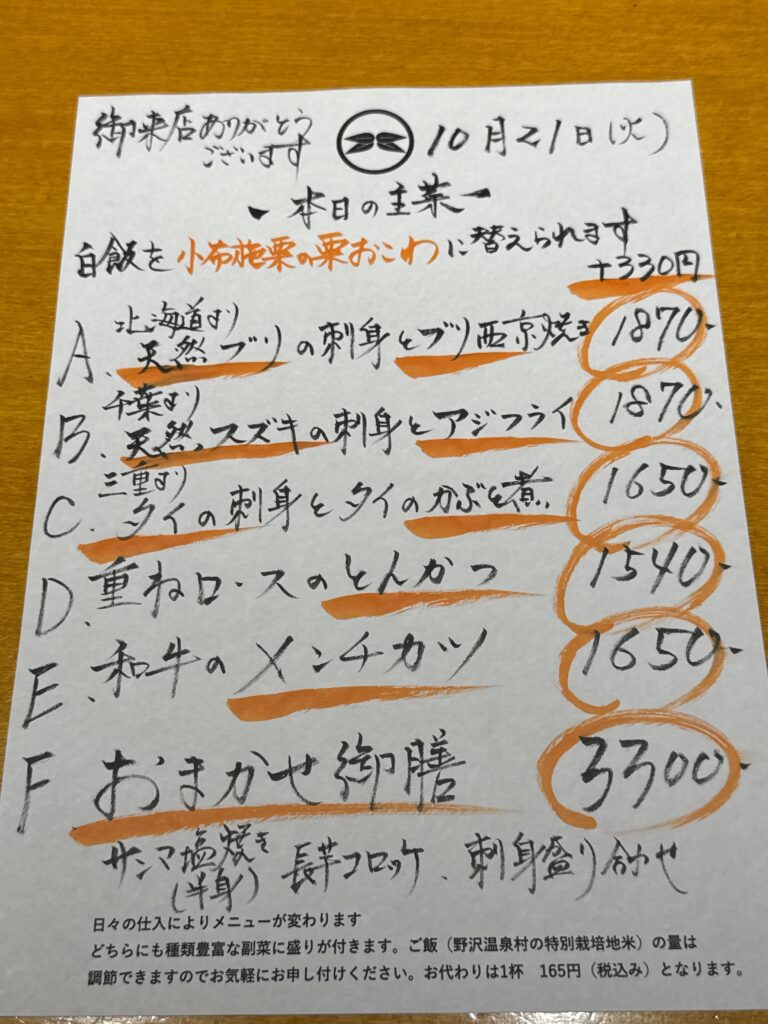 御来店ありがとう
ございます
10月21日(火)
本日の主菜
白飯を小布施栗の栗おこわに替えられます
+330円
北海道より
A、天然ブリの刺身とブリ西京焼き 1870-
千葉より
B、天然スズキの刺身とアジフライ 1870-
三重より
C、タイの刺身とタイのかぶと煮 1650-
D、重ねロースのとんかつ 1540-
E、和牛のメンチカツ 1650-
F おまかせ御膳 3300-
サンマ塩焼き(半身) 長芋コロッケ、刺身盛り合わせ
日々の仕入によりメニューが変わります
どちらにも種類豊富な副菜に盛りが付きます。ご飯（野沢温泉村の特別栽培地米）の量は
調節できますのでお気軽にお申し付けください。お代わりは1杯 165円（税込み）となります。